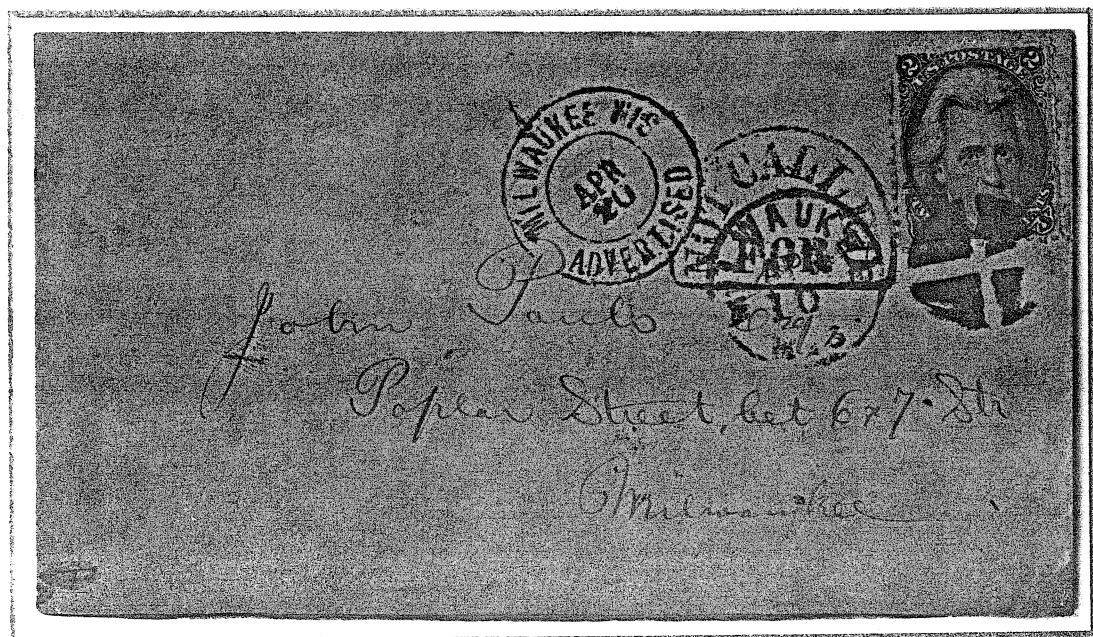 U.S. POSTAGE
2 2
MILWAUKEE WIS
APR
20
ADVERTISED
NOT CALLED
FOR
MILWAUKEE
APR
10
John
Poplar Street, bet 6 & 7. Str
Milwaukee